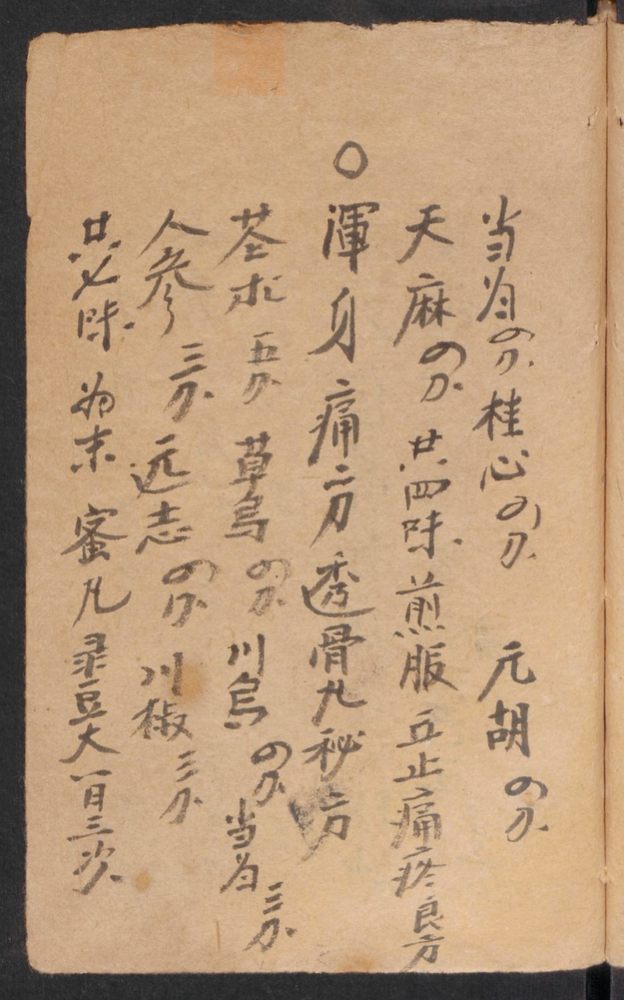 当归四分 桂心四分 元胡四分
天麻四分 共四味 煎服 立止痛疼良方
〇渾身痛方 透骨丸秘方
苍术五分 草乌四分 川乌四分 当归三分
人參三分 远志四分 川椒三分
共七味 为末 蜜丸 彔豆大 一日三次